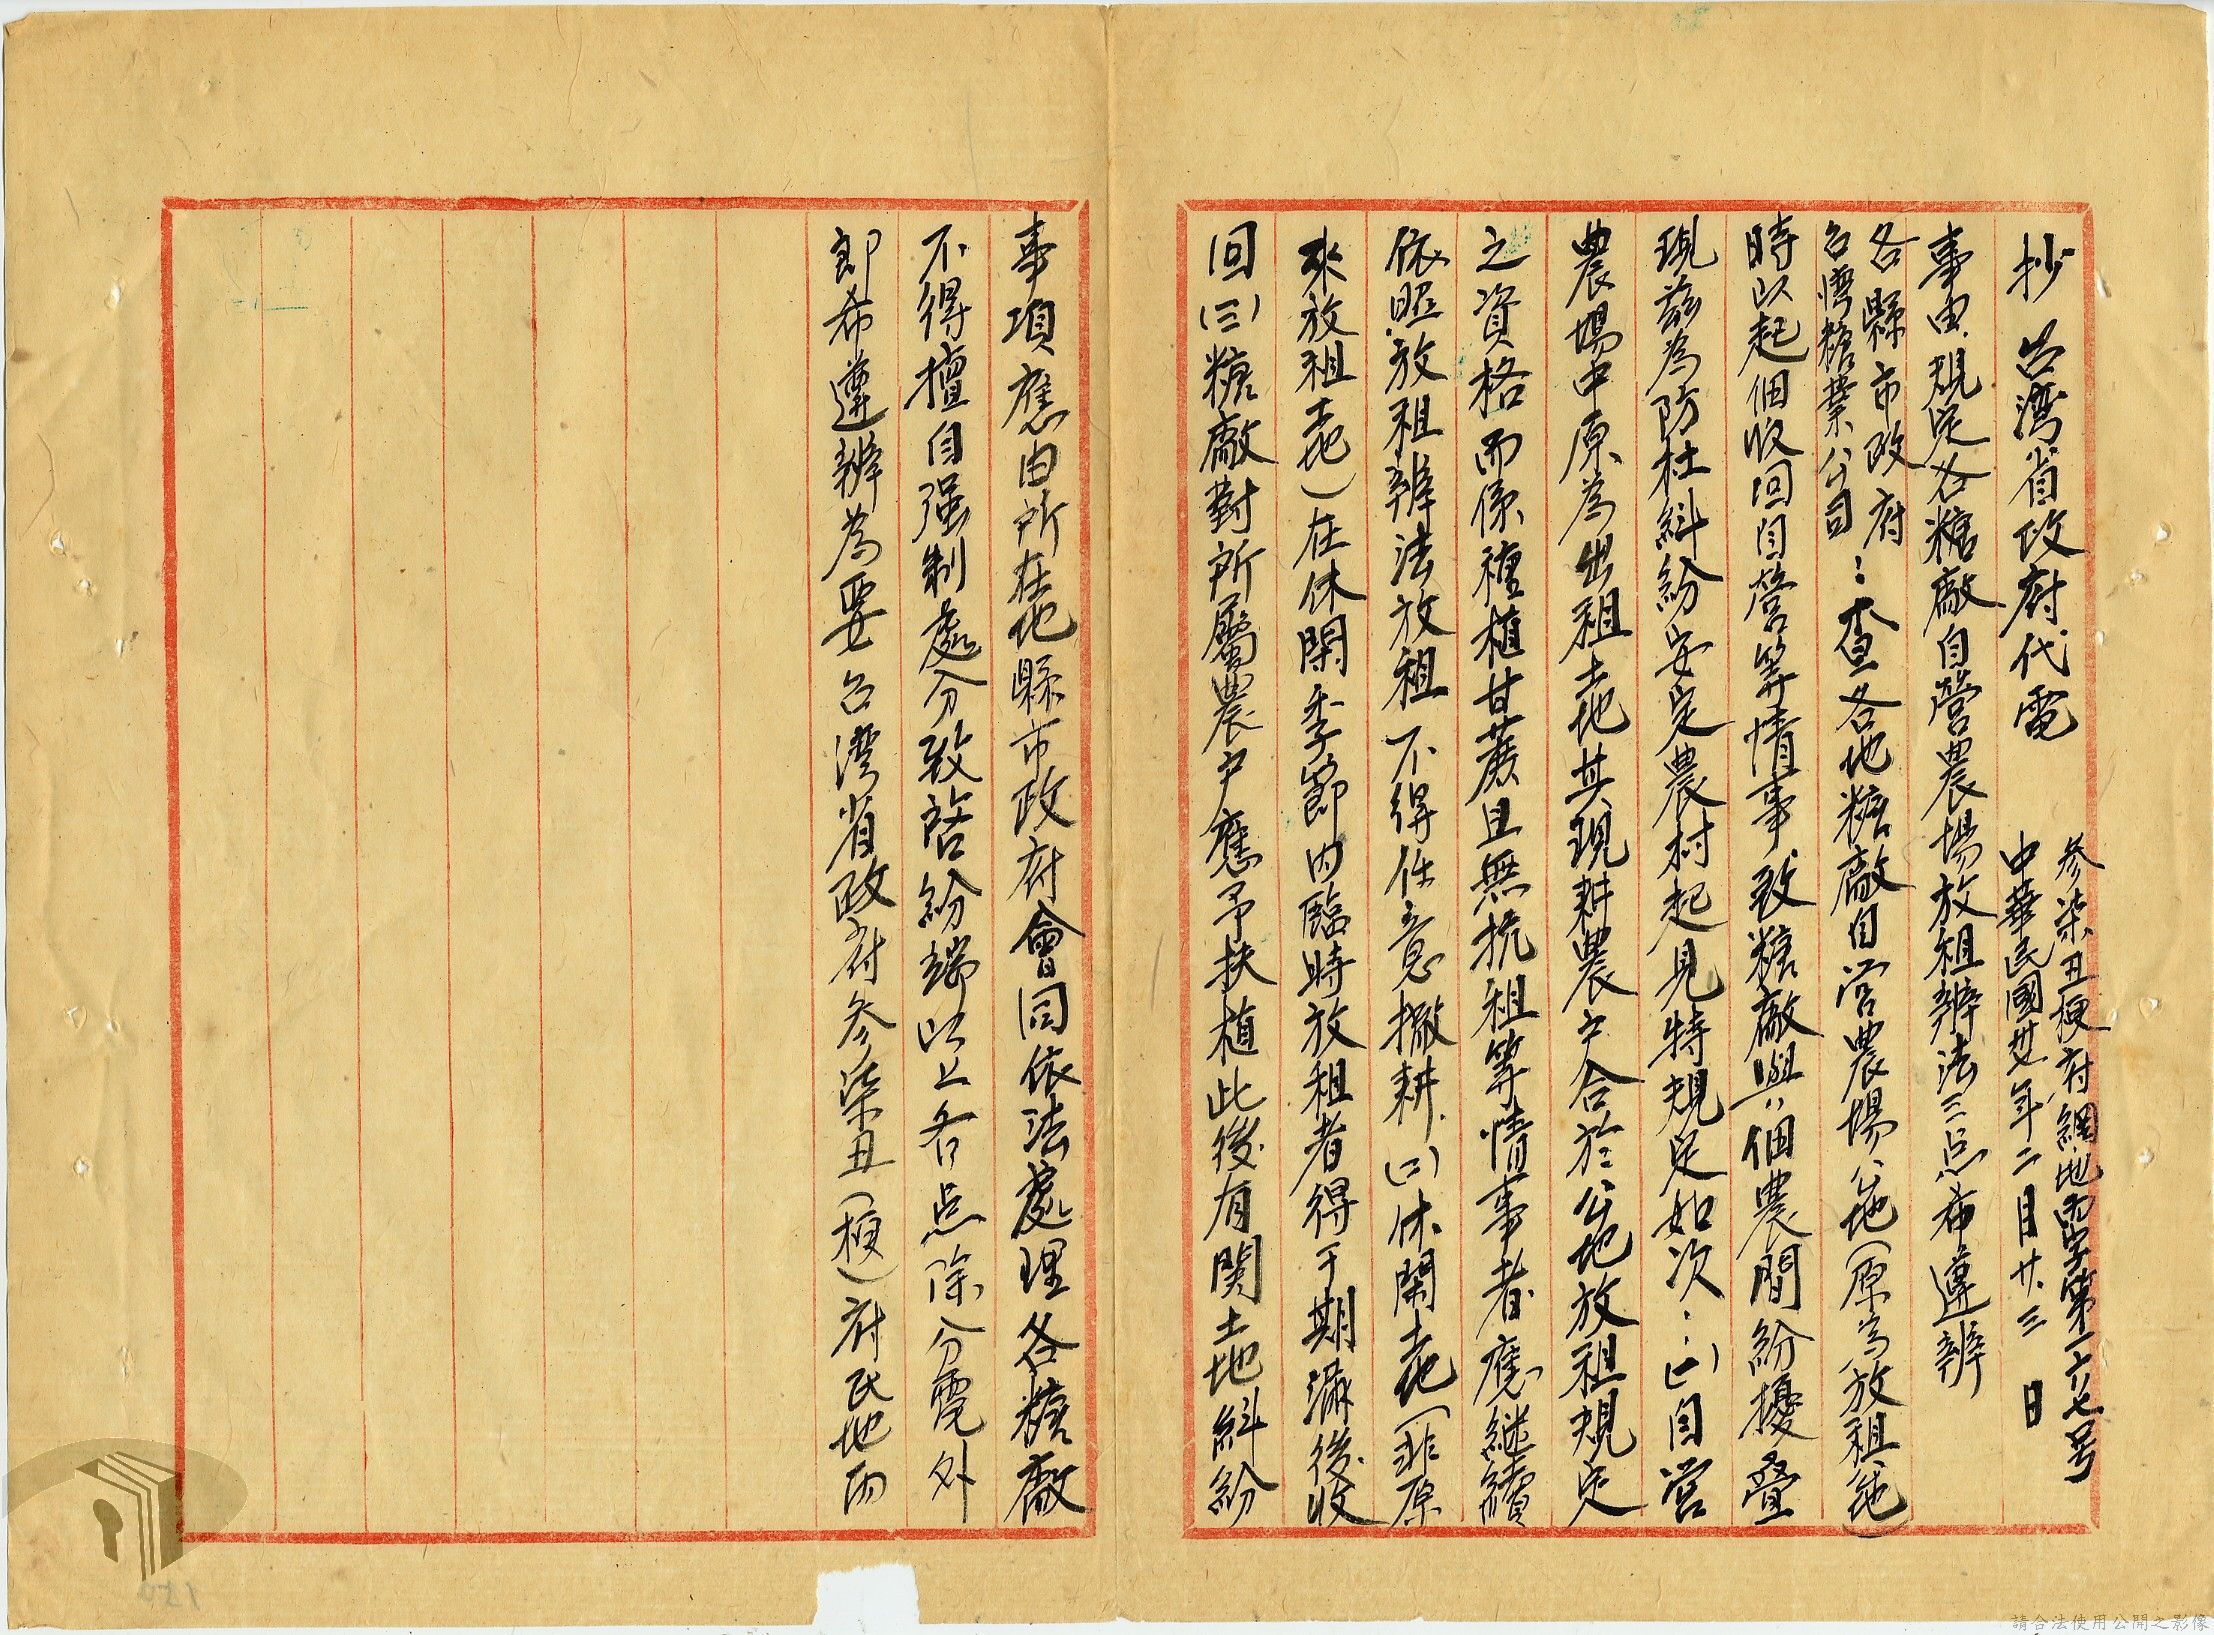 抄 台灣省政府代電
参柒丑梗府綱地丙字第一六七号
中華民國卅七年二月廿三日
事由規定各糖廠自營農場放租辦法三点希遵辦
各縣市政府
台灣糖業公司：查各地糖廠自営農場公地（原為放租公地）
時以起佃收回自營等情事致糖廠與佃農間紛擾疊
現茲為防杜糾紛安定農村起見特規定如次：（一）自営
農場中原為出租土地其現耕農户合於公地放租規定
之資格而係種植甘蔗且無抗租等情事者應継續
依照放租辦法放租不得任意撤耕（二）休閑土地（非原
來放租土地）在休閑季節内臨時放租者得于期滿後收
回（三）糖廠對所屬農户應予扶植此後有関土地糾紛
事項應由所在地縣市政府會同依法處理各糖廠
不得擅自强制處分致啓紛端以上各点除分電外
即希遵辦為要台灣省政府参柒丑（梗）府民地丙
請合法使用公開之影像